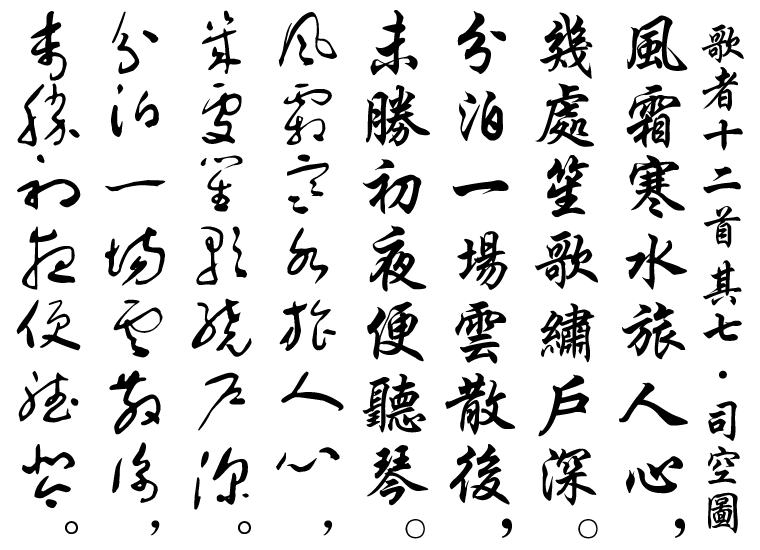 歌者十二首其七・司空圖
風霜寒水旅人心，
幾處笙歌繡戶深。
分泊一場雲散後，
未勝初夜便聽琴。
風霜寒水旅人心，
幾處笙歌繡戶深。
分泊一場雲散後，
未勝初夜便聽琴。